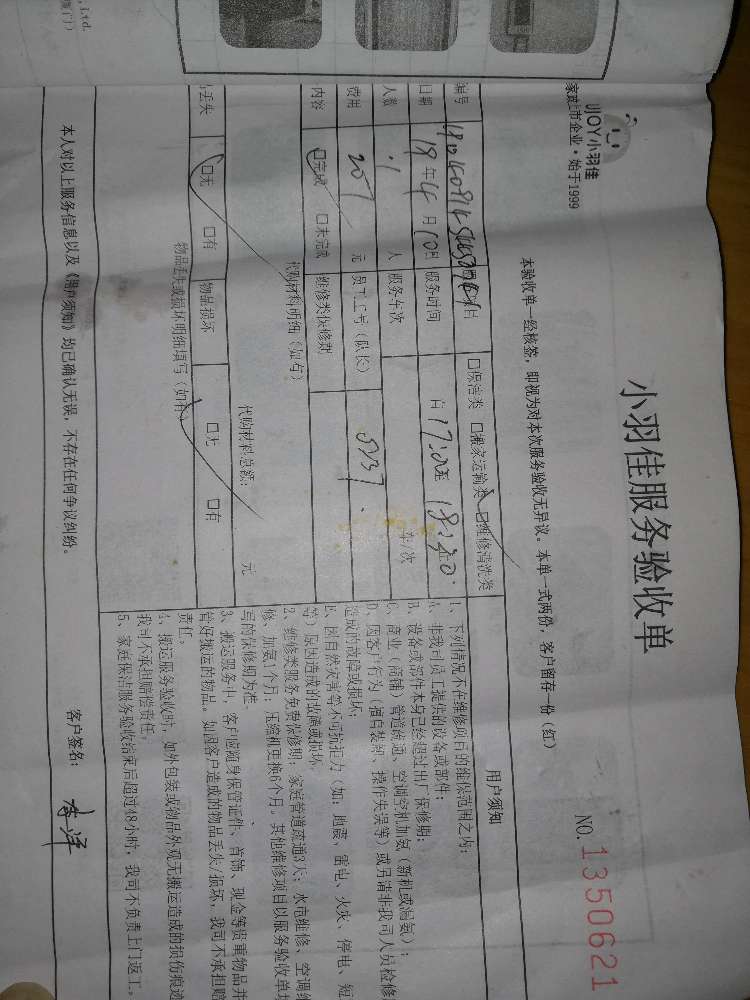 小羽佳服务验收单
UJOY小羽佳
家政上市企业·始于1999
NO.1350621
本验收单一经核签，即视为对本次服务验收无异议。本单一式两份，客户留存一份（红）
编号
□保洁类 □搬家运输类 ☑维修清洗类
日期 19年4月10日 服务时间 自17:00至18:20
人数 1 人 服务车次 车/次
费用 207 元 员工工号（队长） 0237
内容 □完成 □未完成 维修类保修期
代购材料明细（如有）
代购材料总额： 元
丢失 □无 □有 物品损坏 □无 □有
物品丢失或损坏明细填写（如有）
用户须知
1、下列情况不在维修项目的维保范围之内：
A、非我司员工提供的设备或部件；
B、设备或部件本身已经超过出厂保修期；
C、商业（商铺）管道疏通、空调整机加氨（新机或漏氨）；
D、因客户行为（擅自装卸、操作失误等）或另请非我司人员检修
造成的故障或损坏；
E、因自然灾害等不可抗拒力（如：地震、雷电、火灾、停电、短
等）原因造成的故障或损坏。
2、维修类服务免费保修期：家庭管道疏通3天；水电维修、空调维
修、加氨1个月；压缩机更换6个月。其他维修项目以服务验收单填
写的保修期为准。
3、搬运服务中，客户应随身保管证件、首饰、现金等贵重物品并
管好搬运的物品。如因客户造成的物品丢失/损坏，我司不承担赔
责任。
4、搬运服务验收时，如外包装或物品外观无搬运造成的损伤痕迹
我司不承担赔偿责任。
5、家庭保洁服务验收结束后超过48小时，我司不负责上门返工。
本人对以上服务信息以及《用户须知》均已确认无误，不存在任何争议纠纷。
客户签名：
Ltd.